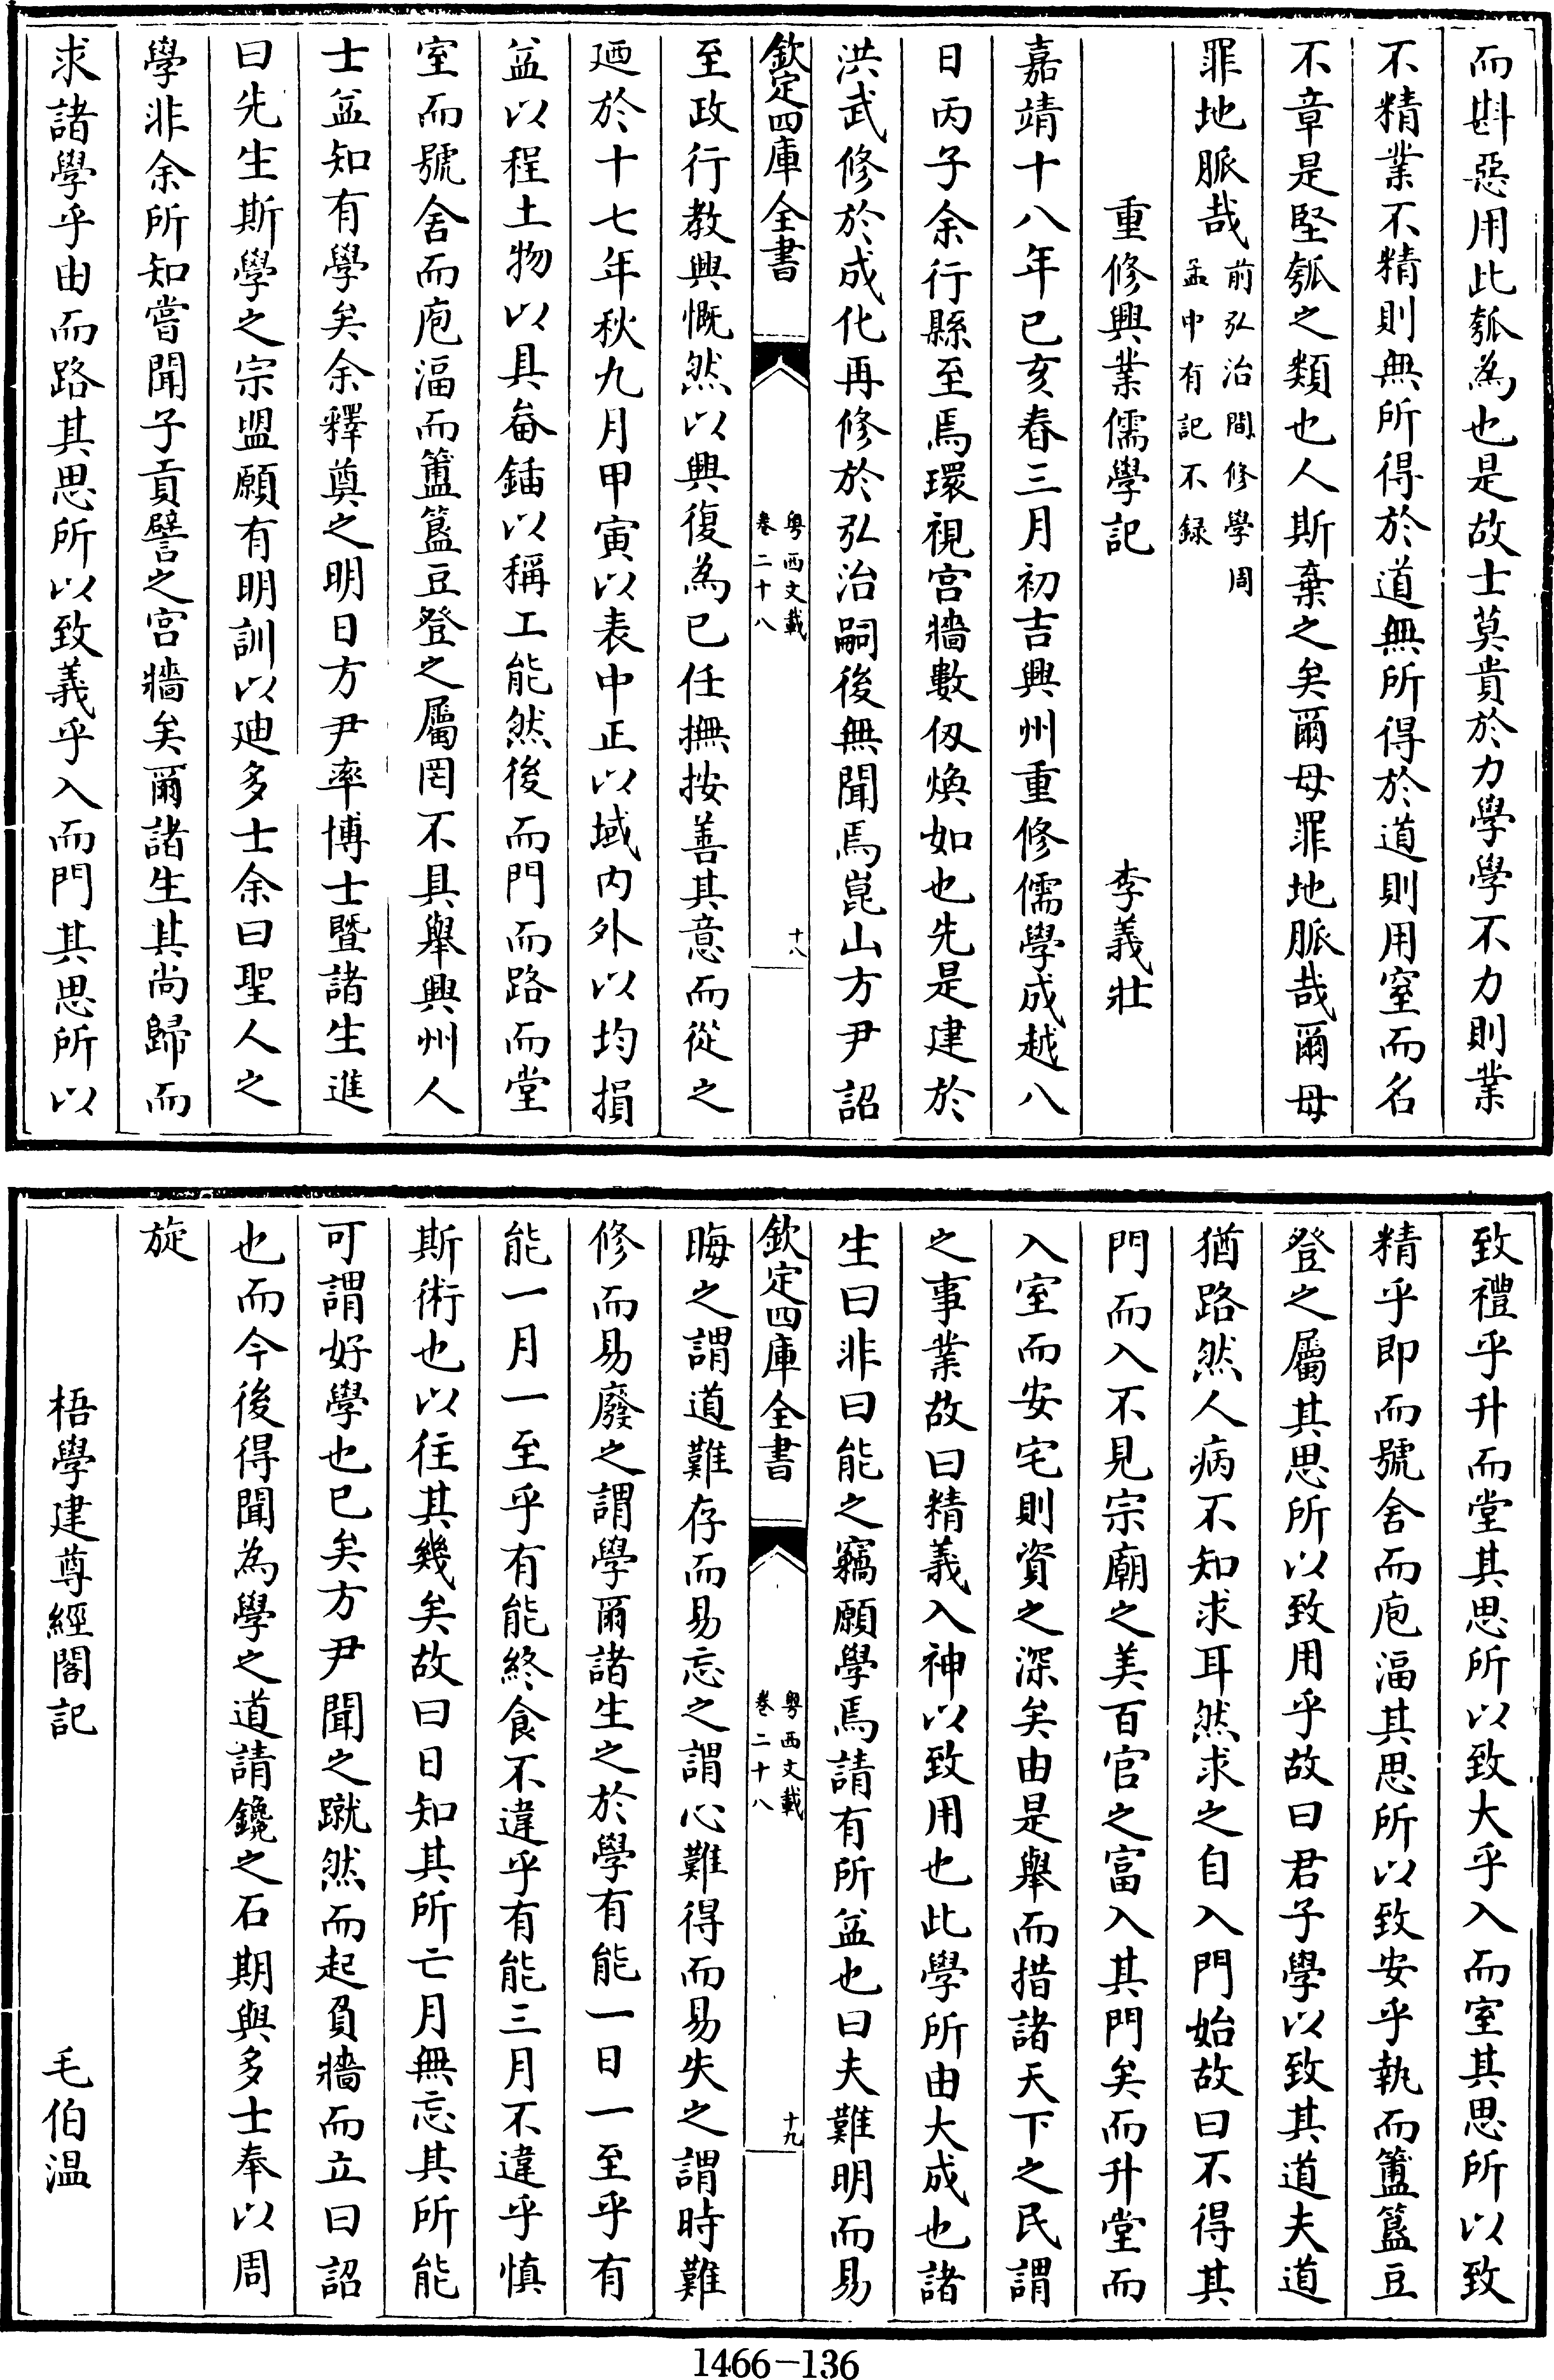 而斟惡用此瓠為也是故士莫貴於力學學不力則業
不精業不精則無所得於道無所得於道則用窒而名
不章是堅瓠之類也人斯棄之矣爾毋罪地脈哉爾毋
罪地脈哉前弘治間修學周
孟中有記不録
重修興業儒學記 李義壯
嘉靖十八年已亥春三月初吉興州重修儒學成越八
日丙子余行縣至焉環視宫牆數仭煥如也先是建於
洪武修於成化再修於弘治嗣後無聞焉崑山方尹詔
欽定四庫全書 粤西文載
卷二十八 十八
至政行教興慨然以興復為已任撫按善其意而從之
廼於十七年秋九月甲寅以表中正以域内外以均損
益以程土物以具畚鍤以稱工能然後而門而路而堂
室而號舍而庖湢而簠簋豆登之屬罔不具舉興州人
士益知有學矣余釋奠之明日方尹率博士暨諸生進
曰先生斯學之宗盟願有明訓以廸多士余曰聖人之
學非余所知嘗聞子貢譬之宫牆矣爾諸生其尚歸而
求諸學乎由而路其思所以致義乎入而門其思所以
致禮乎升而堂其思所以致大乎入而室其思所以致
精乎即而號舍而庖湢其思所以致安乎執而簠簋豆
登之屬其思所以致用乎故曰君子學以致其道夫道
猶路然人病不知求耳然求之自入門始故曰不得其
門而入不見宗廟之美百官之富入其門矣而升堂而
入室而安宅則資之深矣由是舉而措諸天下之民謂
之事業故曰精義入神以致用也此學所由大成也諸
生曰非曰能之竊願學焉請有所益也曰夫難明而易
欽定四庫全書 粤西文載
卷二十八 十九
晦之謂道難存而易忘之謂心難得而易失之謂時難
修而易廢之謂學爾諸生之於學有能一日一至乎有
能一月一至乎有能終食不違乎有能三月不違乎慎
斯術也以往其幾矣故曰日知其所亡月無忘其所能
可謂好學也已矣方尹聞之蹴然而起負牆而立曰詔
也而今後得聞為學之道請鑱之石期與多士奉以周
旋
梧學建尊經閣記 毛伯温
1466-136